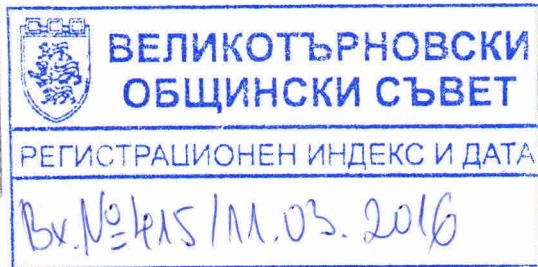 ВЕЛИКОТЪРНОВСКИ
ОБЩИНСКИ СЪВЕТ
РЕГИСТРАЦИОНЕН ИНДЕКС И ДАТА
Вх. № 415 / 11.03. 2016